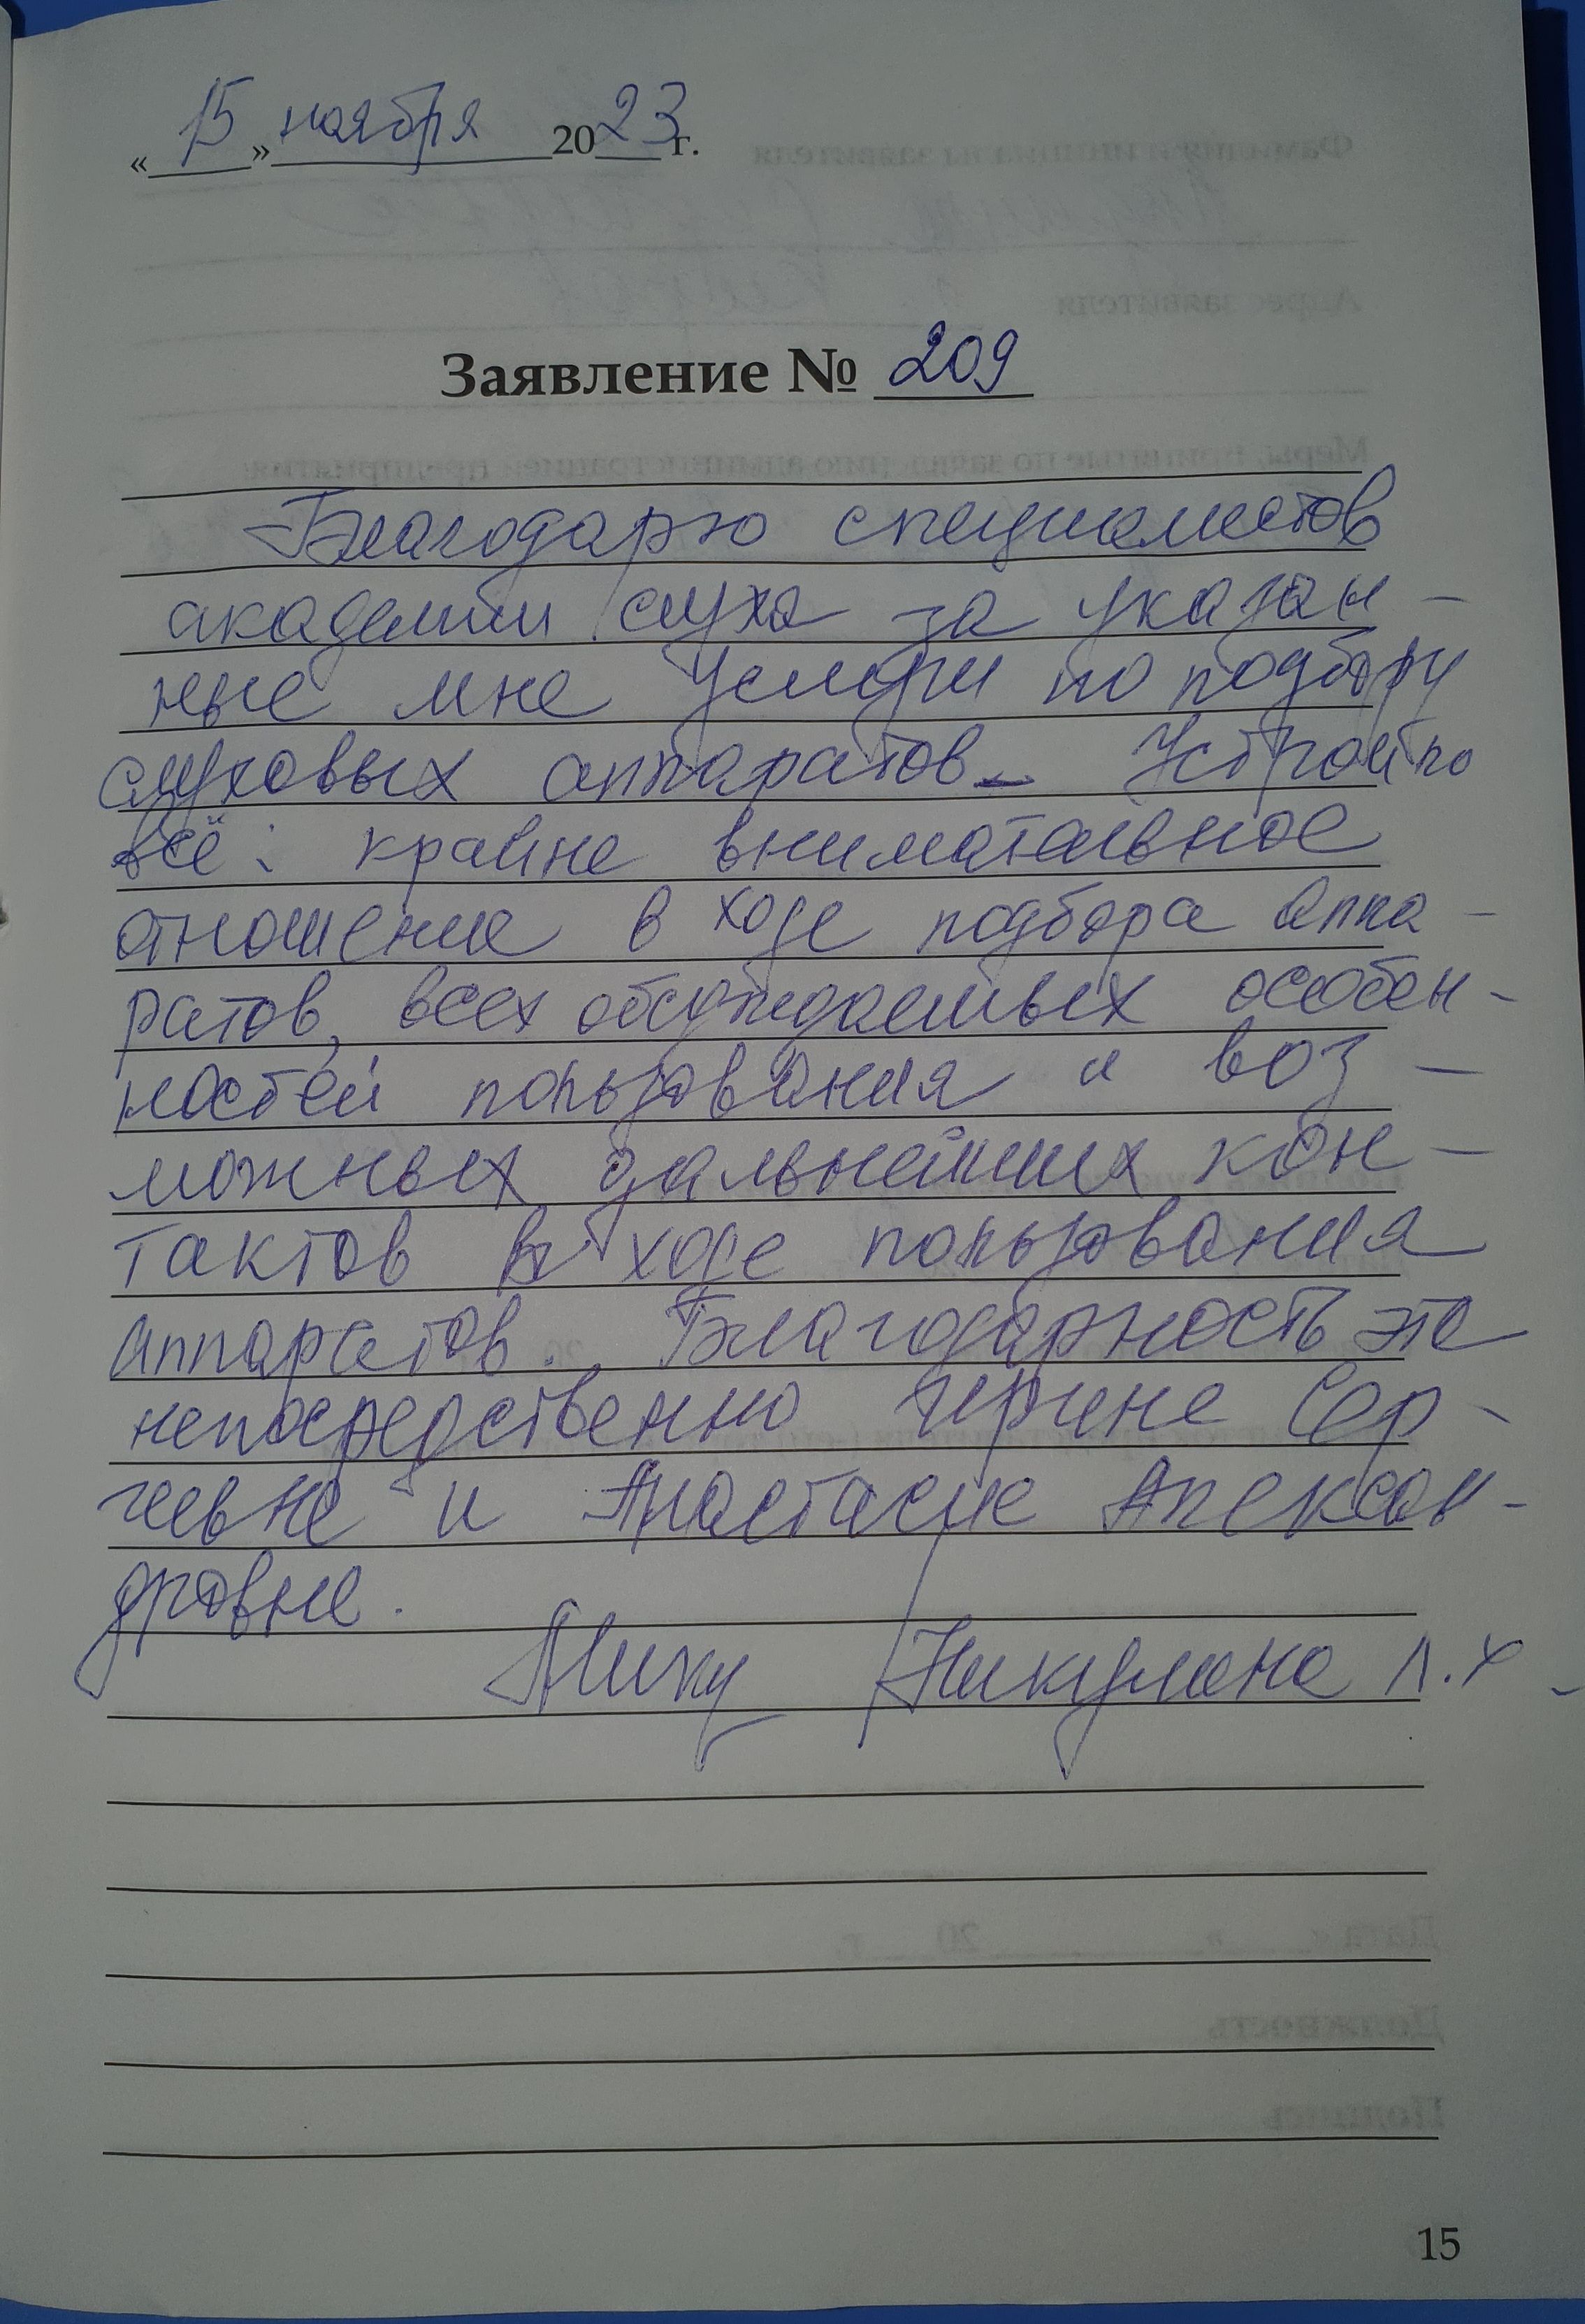 «15» ноября 2023 г.
Заявление № 209
Благодарю специалистов
академии слуха за указан-
ные мне услуги по подбору
слуховых аппаратов. Устроило
всё: крайне внимательное
отношение в ходе подбора аппа-
ратов, всех обсуждаемых особен-
ностей пользования и воз-
можных дальнейших кон-
тактов в ходе пользования
аппаратов. Благодарность эта
непосредственно Ирине Сер-
геевне и Анастасие Алексан-
дровне.
Никулина Л.Х.
15